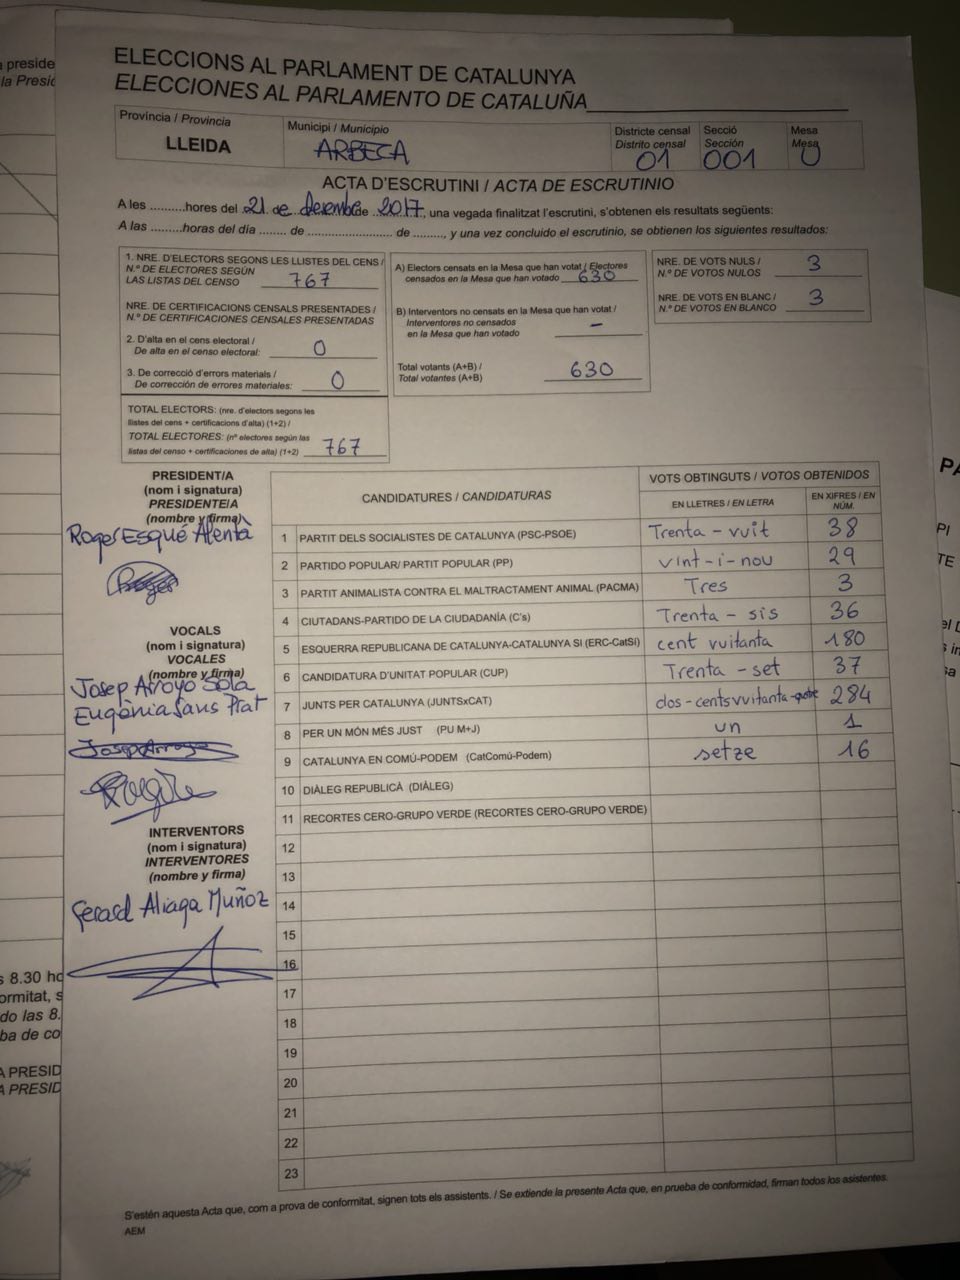 ELECCIONS AL PARLAMENT DE CATALUNYA
ELECCIONES AL PARLAMENTO DE CATALUÑA
Província / Provincia
LLEIDA
Municipi / Municipio
ARBECA
Districte censal
Distrito censal
01
Secció
Sección
001
Mesa
Mesa
U
ACTA D'ESCRUTINI / ACTA DE ESCRUTINIO
A les .........hores del 21 de desembre de 2017, una vegada finalitzat l'escrutini, s'obtenen els resultats següents:
A las .........horas del día ....... de ....................... de ........, y una vez concluido el escrutinio, se obtienen los siguientes resultados:
1. NRE. D'ELECTORS SEGONS LES LLISTES DEL CENS /
N.º DE ELECTORES SEGÚN
LAS LISTAS DEL CENSO 767
NRE. DE CERTIFICACIONS CENSALS PRESENTADES /
N.º DE CERTIFICACIONES CENSALES PRESENTADAS
2. D'alta en el cens electoral /
De alta en el censo electoral: 0
3. De correcció d'errors materials /
De corrección de errores materiales: 0
TOTAL ELECTORS: (nre. d'electors segons les
llistes del cens + certificacions d'alta) (1+2) /
TOTAL ELECTORES: (nº electores según las
listas del censo + certificaciones de alta) (1+2) 767
A) Electors censats en la Mesa que han votat / Electores
censados en la Mesa que han votado 630
B) Interventors no censats en la Mesa que han votat /
Interventores no censados
en la Mesa que han votado –
Total votants (A+B) /
Total votantes (A+B) 630
NRE. DE VOTS NULS /
N.º DE VOTOS NULOS 3
NRE. DE VOTS EN BLANC /
N.º DE VOTOS EN BLANCO 3
PRESIDENT/A
(nom i signatura)
PRESIDENTE/A
(nombre y firma)
Roger Esqué Alentà
VOCALS
(nom i signatura)
VOCALES
(nombre y firma)
Josep Arroyo Solà
Eugènia Sans Prat
Josep Arroyo
INTERVENTORS
(nom i signatura)
INTERVENTORES
(nombre y firma)
Gerard Aliaga Muñoz
CANDIDATURES / CANDIDATURAS
VOTS OBTINGUTS / VOTOS OBTENIDOS
EN LLETRES / EN LETRA
EN XIFRES / EN NÚM.
1 PARTIT DELS SOCIALISTES DE CATALUNYA (PSC-PSOE) Trenta - vuit 38
2 PARTIDO POPULAR/ PARTIT POPULAR (PP) vint-i-nou 29
3 PARTIT ANIMALISTA CONTRA EL MALTRACTAMENT ANIMAL (PACMA) Tres 3
4 CIUTADANS-PARTIDO DE LA CIUDADANÍA (C's) Trenta - sis 36
5 ESQUERRA REPUBLICANA DE CATALUNYA-CATALUNYA SI (ERC-CatSí) cent vuitanta 180
6 CANDIDATURA D'UNITAT POPULAR (CUP) Trenta - set 37
7 JUNTS PER CATALUNYA (JUNTSxCAT) dos-cents vuitanta-quatre 284
8 PER UN MÓN MÉS JUST (PU M+J) un 1
9 CATALUNYA EN COMÚ-PODEM (CatComú-Podem) setze 16
10 DIÀLEG REPUBLICÀ (DIÀLEG)
11 RECORTES CERO-GRUPO VERDE (RECORTES CERO-GRUPO VERDE)
12
13
14
15
16
17
18
19
20
21
22
23
S'estén aquesta Acta que, com a prova de conformitat, signen tots els assistents. / Se extiende la presente Acta que, en prueba de conformidad, firman todos los asistentes.
AEM
preside
la Presid
s 8.30 ho
ormitat, s
do las 8.
ba de co
A PRESID
A PRESID
PA
PI
TE